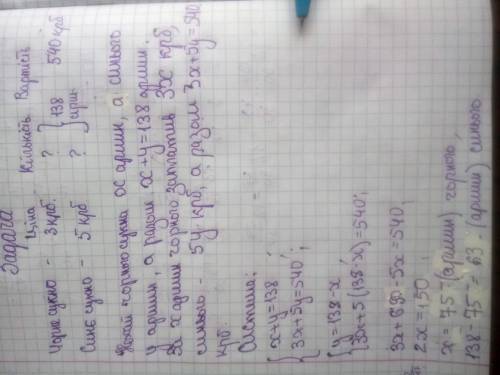 Задача
Ціна Кількість Вартість
Чорне сукно - 3 крб. ? } 138 540 крб
Синє сукно - 5 крб ? } аршин
Нехай чорного сукна x аршин, а синього
y аршин, а разом x+y=138 аршин.
За x аршин чорного заплатив 3x крб,
синього - 5y крб, а разом 3x+5y=540
крб.
Система:
{ x+y=138
3x+5y=540 ;
{ y=138-x
3x+5(138-x)=540 ;
3x+690-5x=540 ;
2x=150 ;
x=75 (аршин) чорного ;
138-75=63 (аршин) синього